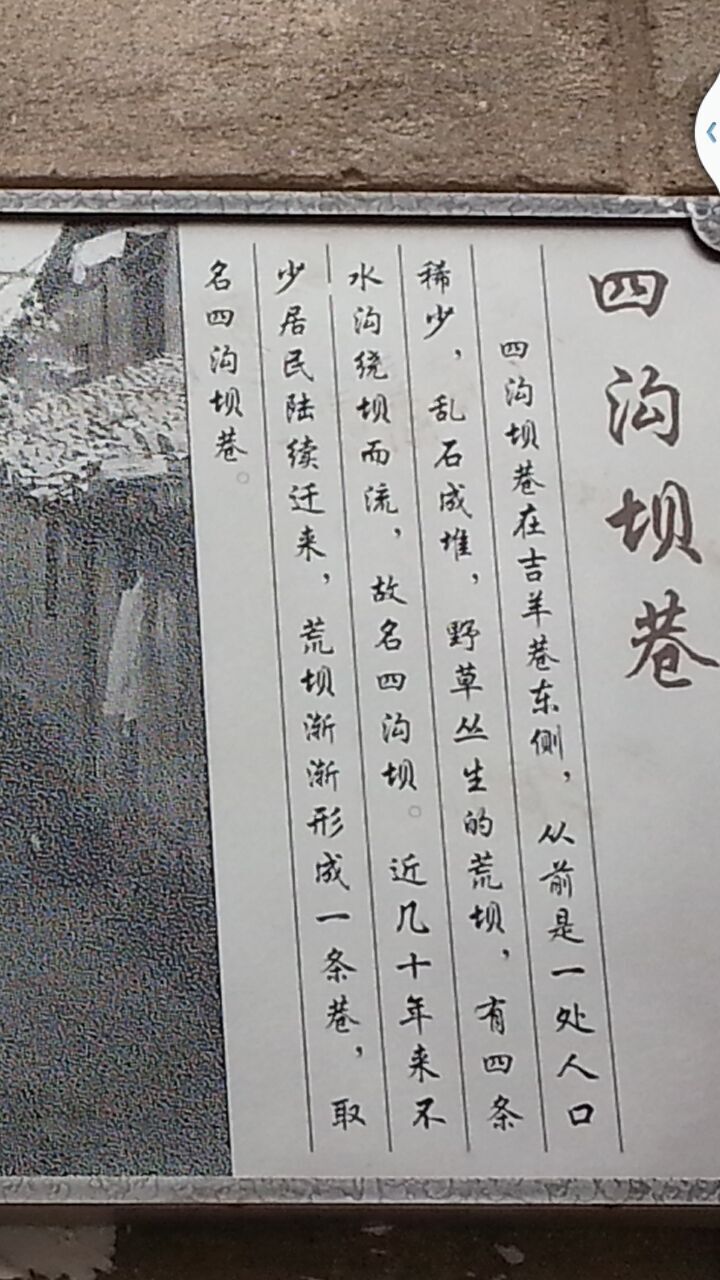 四沟坝巷
四沟坝巷在吉羊巷东侧，从前是一处人口
稀少，乱石成堆，野草丛生的荒坝，有四条
水沟绕坝而流，故名四沟坝。近几十年来不
少居民陆续迁来，荒坝渐渐形成一条巷，取
名四沟坝巷。